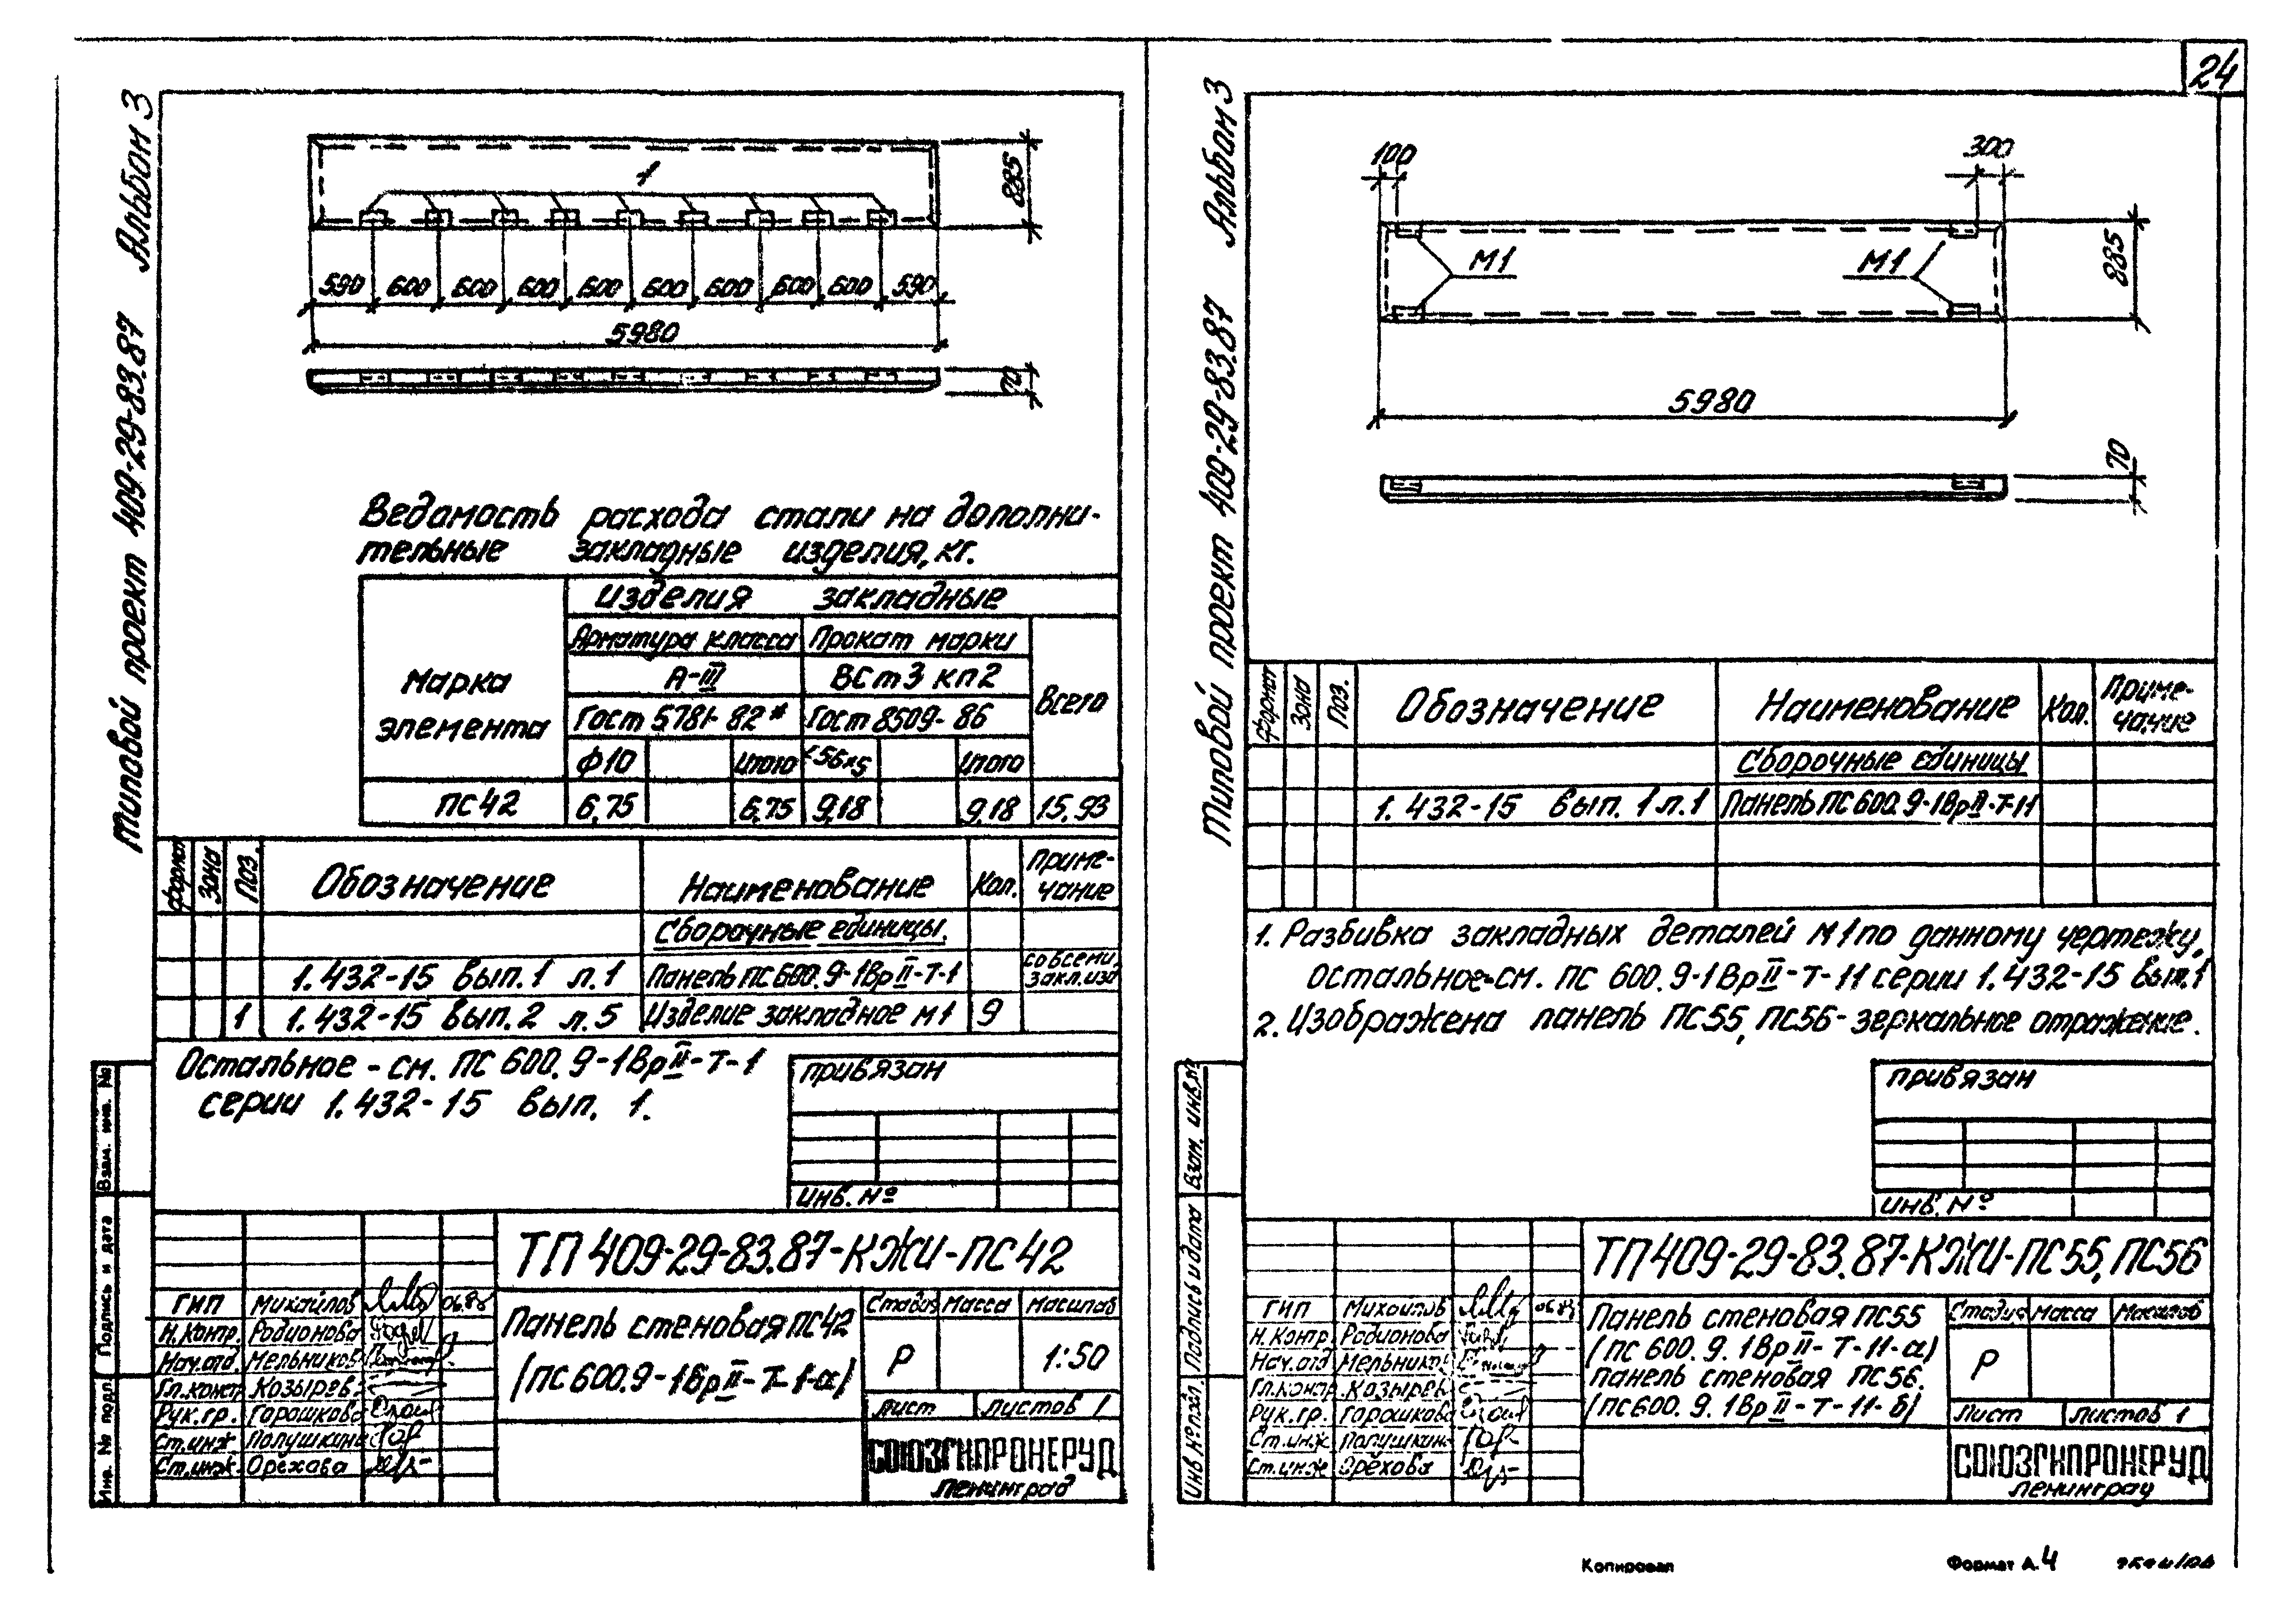 24
Типовой проект 409-29-83.87 Альбом 3
1
885
590 600 600 600 600 600 600 600 600 590
5980
70
Ведомость расхода стали на дополни-
тельные закладные изделия, кг.
Марка элемента
Изделия закладные
Арматура класса
Прокат марки
Всего
А-III
ВСт3 кп2
Гост 5781-82*
Гост 8509-86
ф10
Итого
∟56х5
Итого
ПС42 6,75 6,75 9,18 9,18 15,93
Формат Зона Поз. Обозначение Наименование Кол. Приме-
чание
Сборочные единицы.
1.432-15 вып.1 л.1 Панель ПС600.9-1ВрII-Т-1 со всеми
закл.изд
1 1.432-15 вып.2 л.5 Изделие закладное М1 9
Остальное - см. ПС 600.9-1ВрII-Т-1
серии 1.432-15 вып. 1.
Привязан
Инв. №
Взам. инв. №
Подпись и дата
Инв. № подл.
ТП 409-29-83.87-КЖИ-ПС42
ГИП Михайлов 06.87
Н.контр. Родионова
Нач.отд. Мельников
Гл.констр. Козырев
Рук.гр. Горошкова
Ст.инж Полушкина
Ст.инж Орехова
Панель стеновая ПС42
(ПС600.9-1ВрII-Т-1-а)
Стадия Масса Масштаб
Р 1:50
Лист Листов 1
СОЮЗГИПРОНЕРУД
Ленинград
Типовой проект 409-29-83.87 Альбом 3
100
300
М1
М1
885
5980
70
Формат Зона Поз. Обозначение Наименование Кол. Приме-
чание
Сборочные единицы
1.432-15 вып. 1 л.1 Панель ПС600.9-1ВрII-Т-11
1. Разбивка закладных деталей М1 по данному чертежу,
остальное-см. ПС 600.9-1ВрII-Т-11 серии 1.432-15 вып.1
2. Изображена панель ПС55, ПС56-зеркальное отражение.
Привязан
Инв. №
Взам. инв. №
Подпись и дата
Инв № подл.
ТП409-29-83.87-КЖИ-ПС55,ПС56
ГИП Михайлов 06.87
Н.Контр. Родионова
Нач.отд Мельников
Гл.контр. Козырев
Рук.гр. Горошкова
Ст.инж Полушкин
Ст.инж Орёхова
Панель стеновая ПС55
(ПС 600.9.1ВрII-Т-11-а)
Панель стеновая ПС56.
(ПС600.9.1ВрII-Т-11-б)
Стадия Масса Масштаб
Р
Лист Листов 1
СОЮЗГИПРОНЕРУД
Ленинград
Копировал Формат А.4